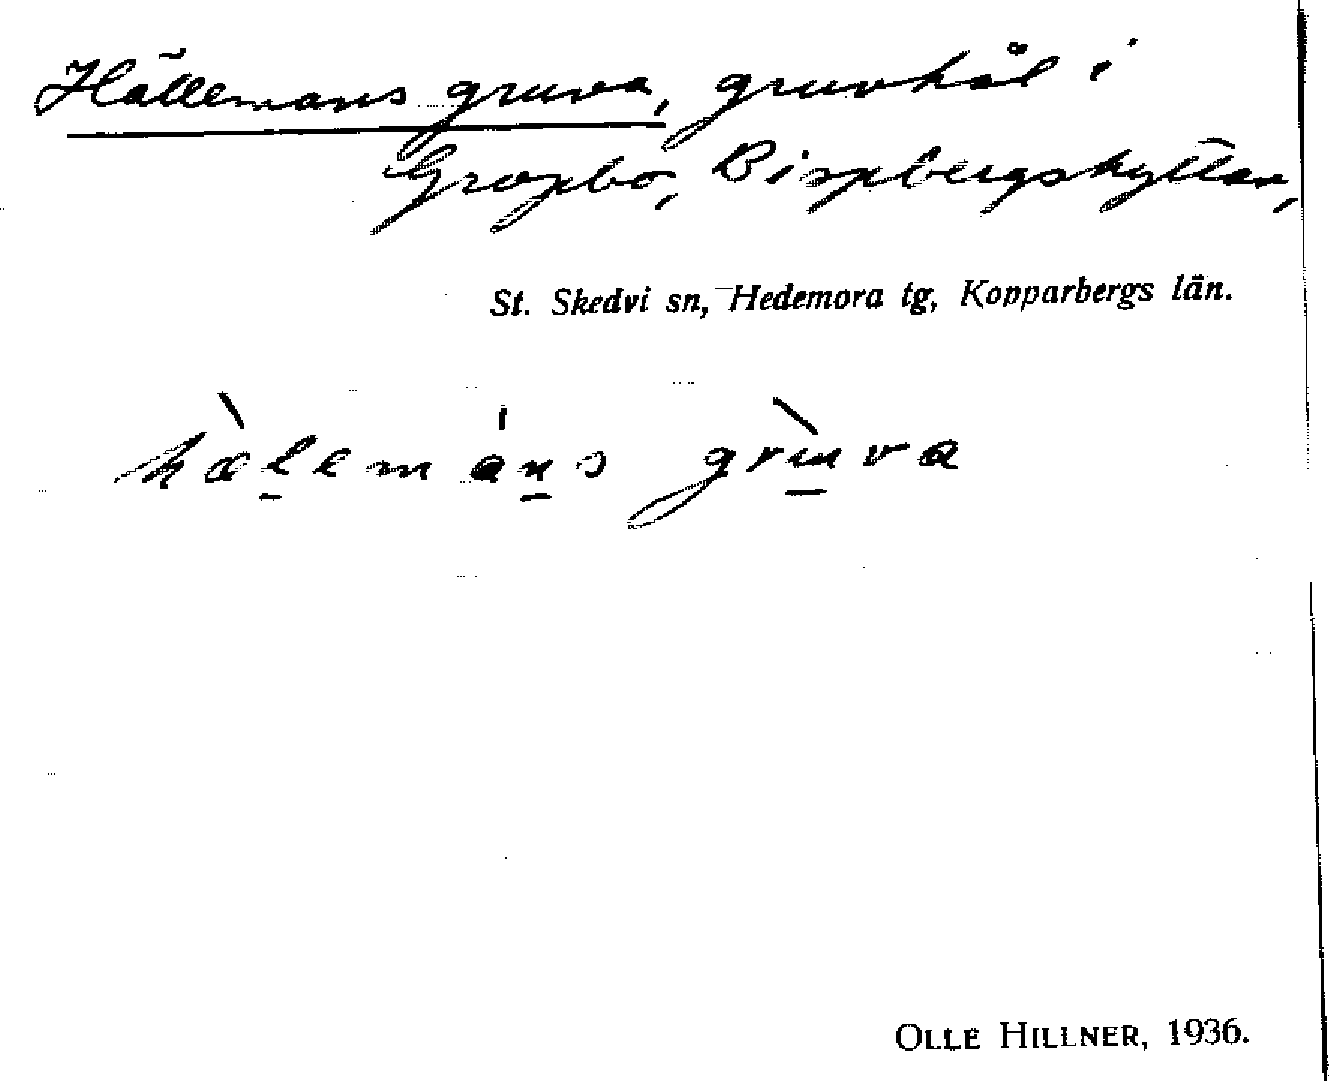 Hällemans gruva, gruvhål i
Gropbo, Bispbergshyttan,
St. Skedvi sn, Hedemora tg, Kopparbergs län.
hæ̀l̠emán̠s grùva
OLLE HILLNER, 1936.